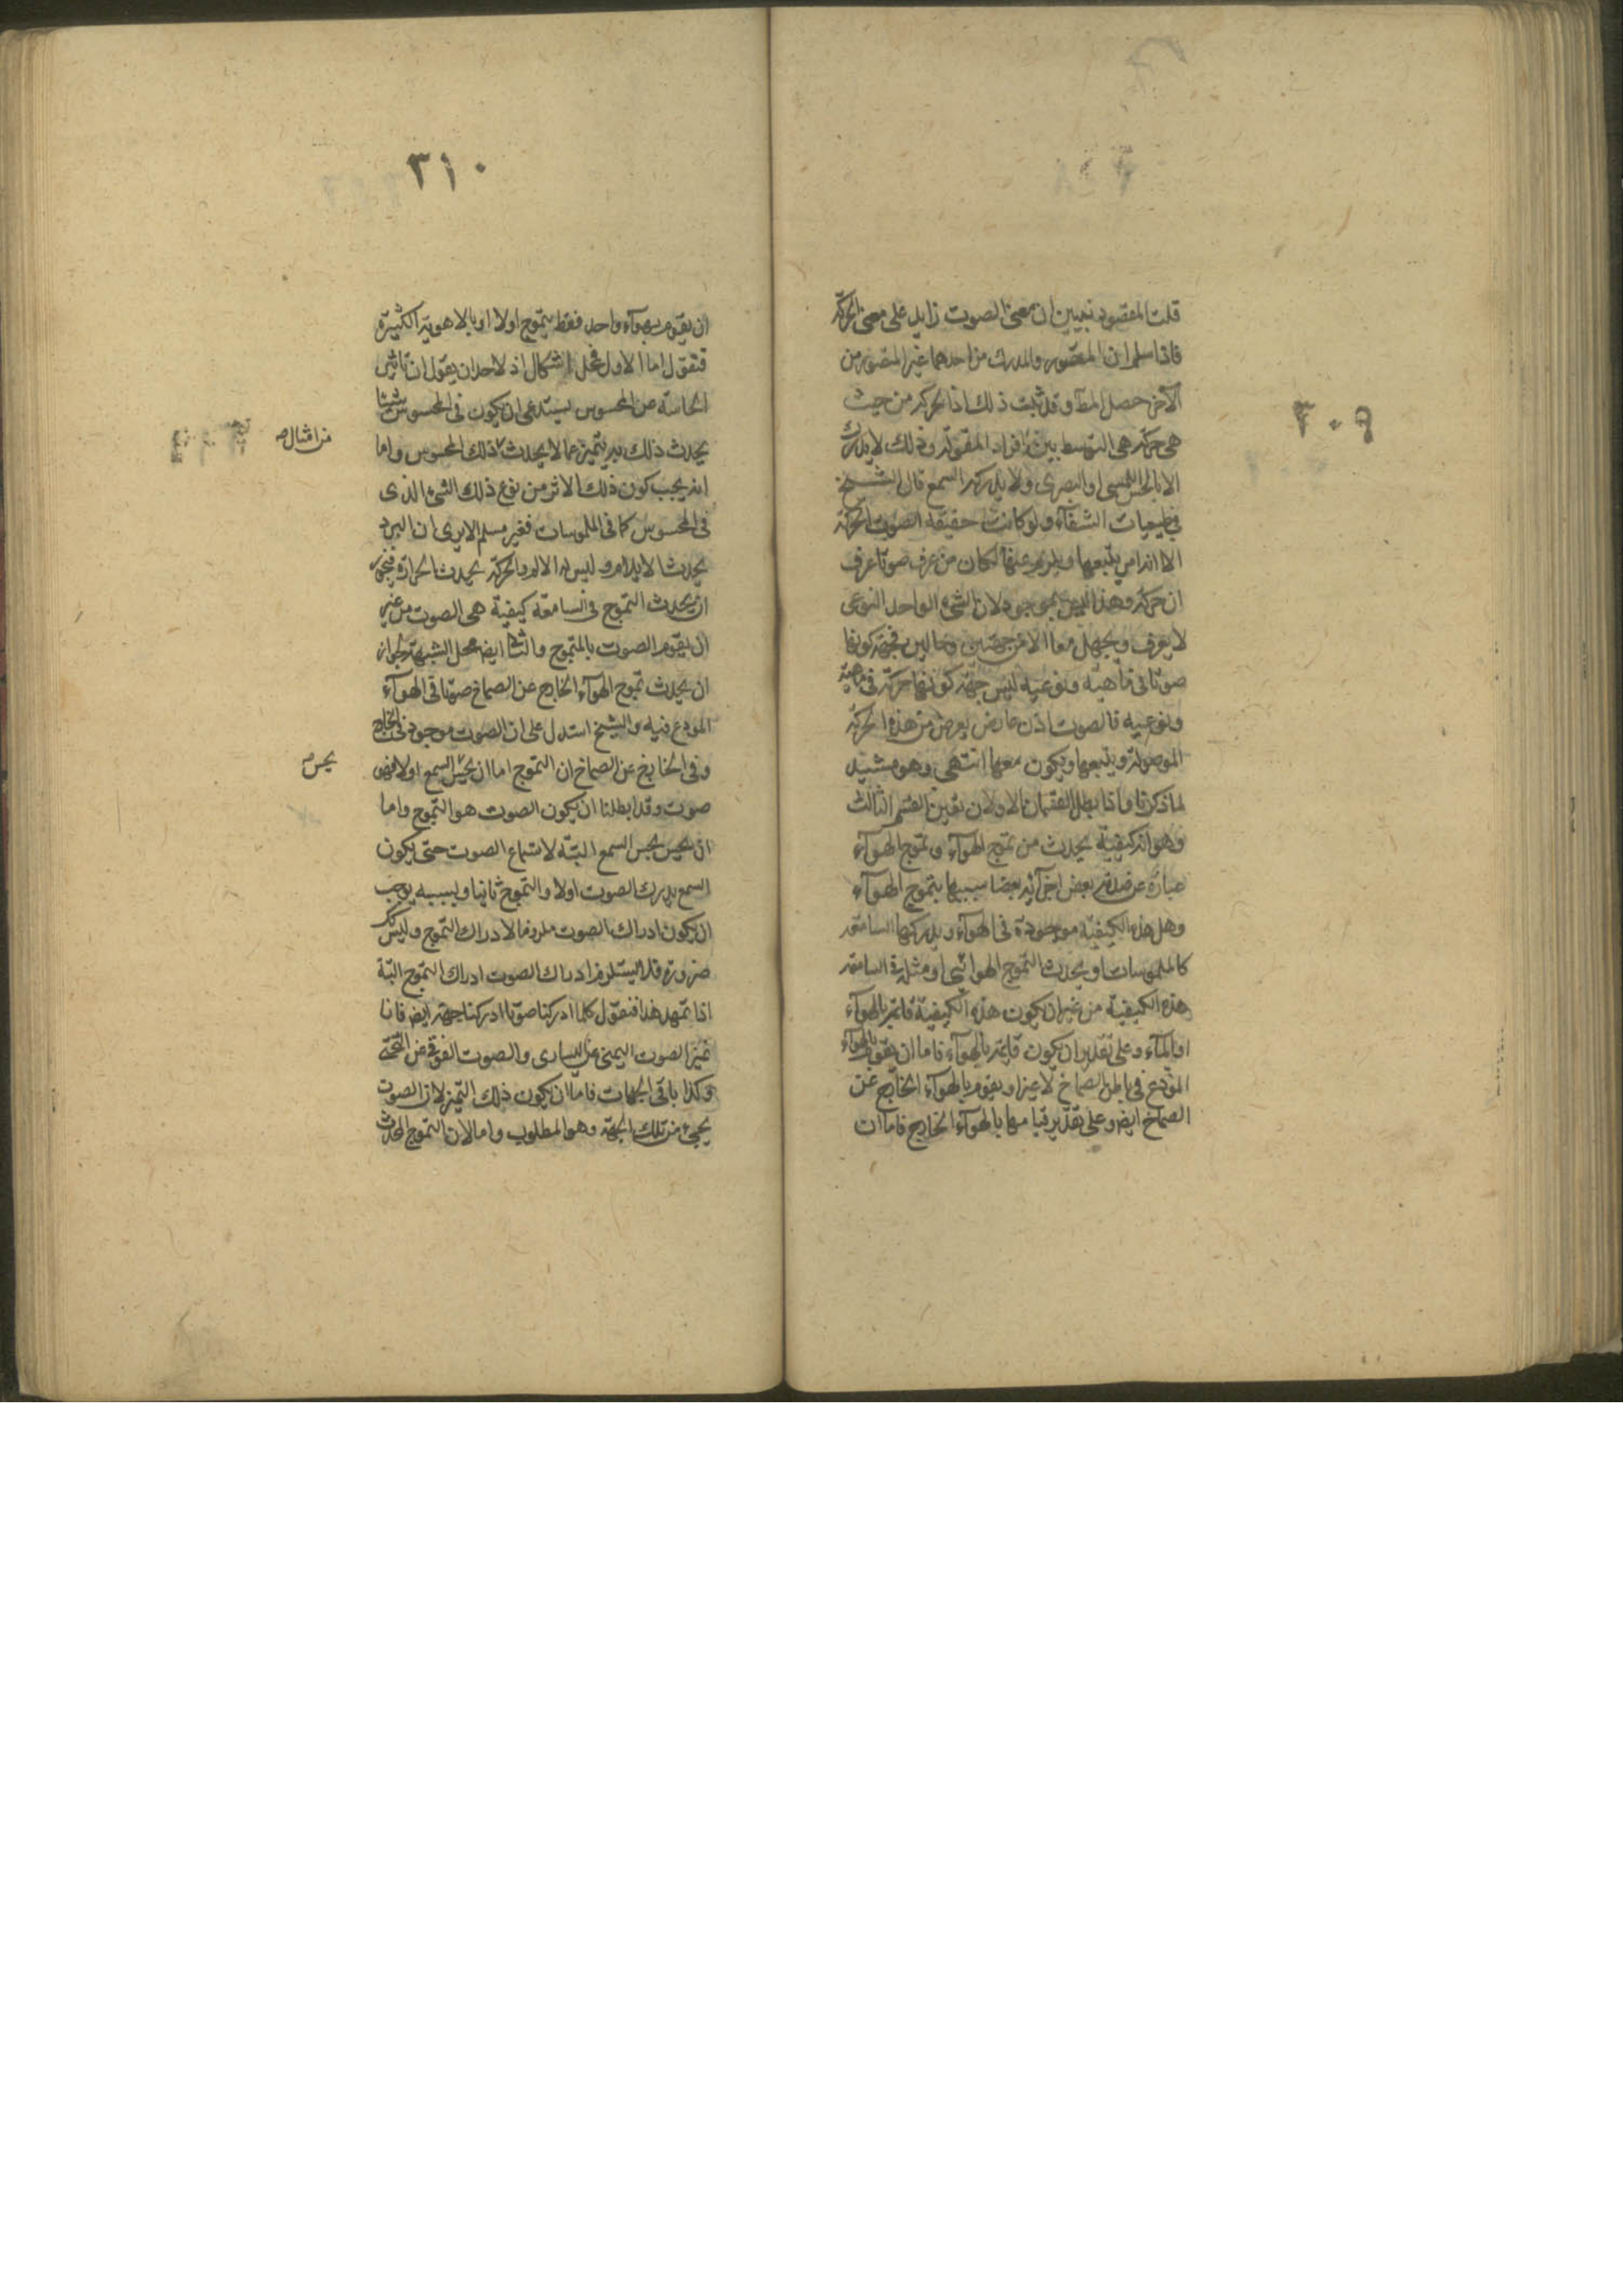 ٣٠٩
قلت المقصود تبيين ان معنى الصوت زايد على معنى الحركة
فاذا سلم ان المتصور والمدرك من احدهما غير المتصور من
الآخر حصل المط وقد ثبت ذلك اذ الحركة من حيث
هى حركة هى التوسط بين افراد المقولة وذلك لا يدرك
الا بالحس اللمسى او البصرى ولا يدركه السمع قال الشيخ
فى طبيعيات الشفآء ولو كانت حقيقة الصوت الحركة
الا انه امر يتبعها ويلزم عنها لكان من عرف صوتا عرف
ان حركة وهذا ليس بموجود لان الشئ الواحد النوعى
لا يعرف ويجهل معا الا من جهتين وحالين فجهة كونها
صوتا فى ماهيته ونوعيته ليس جهة كونها حركة فى ماهيته
ونوعيته فالصوت اذن عارض يعرض من هذه الحركة
الموصوفة ويتبعها ويكون معها انتهى وهو مشيد
لما ذكرنا واذا بطل القسمان الاولان تعين القسم الثالث
وهو انه كيفية يحدث من تموج الهوآء وتموج الهوآء
عبارة عن صدم بعض اجزآئه بعضا سببها يتموج الهوآء
وهل هذه الكيفية موجودة فى الهوآء ويدركها السامعة
كالملموسات او يحدث التموج الهوائى او مشاركة السامعة
هذه الكيفية من غير ان يكون هذه الكيفية قائمة بالهوآء
او بالمآء وعلى تقدير ان يكون قائمة بالهوآء فاما ان يقوم بالهوآء
المودع فى باطن الصماخ لا غير او يقوم بالهوآء الخارج عن
الصماخ ايض وعلى تقدير قيامها بالهوآء الخارج فاما ان
٣١٠
ان يقوم بهوآء واحد فقط يتموج اولا او بالاهوية الكثيرة
فنقول اما الاول فمحل اشكال اذ لاحد ان يقول ان تاثير
الحاسة عن المحسوس يستدعى ان يكون فى المحسوس شيئا
يحدث ذلك به يتميز عما لا يحدث ذلك المحسوس واما
من امثاله
انه يجب كون ذلك الاثر من نوع ذلك الشئ الذى
فى المحسوس كما فى الملموسات فغير مسلم الا يرى ان البرد
يحدث الايلام وليس له الالم والحركة يحدث الحرارة فيجوز
ان يحدث التموج فى السامعة كيفية هى الصوت من غير
ان يقوم الصوت بالمتموج والثانى ايض محل الشبهة لجواز
ان يحدث تموج الهوآء الخارج عن الصماخ صوتا فى الهوآء
المودع فيه والشيخ استدل على ان الصوت موجود فى الخارج
وفى الخارج عن الصماخ ان التموج اما ان يحس السمع اولا فهو
يحس
صوت وقد ابطلنا ان يكون الصوت هو التموج واما
ان يحس بحس السمع البتة لاستماع الصوت حتى يكون
السمع يدرك الصوت اولا والتموج ثانيا وبسببه يوجب
ان يكون ادراك الصوت ملزوما لادراك التموج وليس كك
ضرورة فلا يستلزم ادراك الصوت ادراك التموج البتة
اذا تمهد هذا فنقول كلما ادركنا صوتا ادركنا جهة ايض فانا
نميز الصوت اليمنى عن اليسارى والصوت الفوقى عن التحتى
وكذا باقى الجهات فاما ان يكون ذلك التميز لان الصوت
يجئ من تلك الجهة وهو المطلوب واما لان التموج المحدث